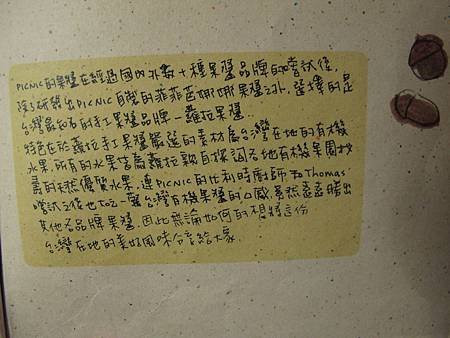 PICNIC的果醬在經過國內外數十種果醬品牌的嚐試後,
除了研發出PICNIC自製的菲菲芭娜娜果醬之外,選擇的是
台灣最知名的手工果醬品牌-蘿拉果醬.
特色在於蘿拉手工果醬嚴選的素材為台灣在地的有機
水果,所有的水果皆為蘿拉親自探詢各地有機果園找
尋的天然優質水果,連PICNIC的比利時廚師 Thomas
嚐試之後也 台灣有機果醬的口感竟然遠遠勝出
其他名品牌果醬.因此無論如何的想將這份
台灣在地的美好風味分享給大家.